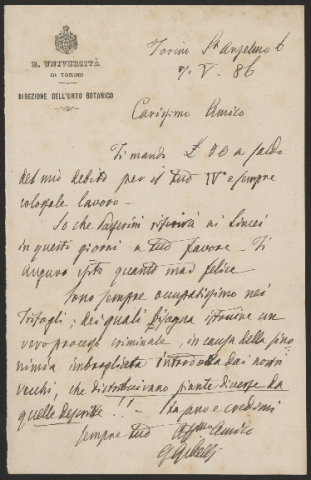 R. UNIVERSITÀ
DI TORINO
DIREZIONE DELL'ORTO BOTANICO
Torino St Anselmo 6
7. V. 86
Carissimo Amico
Ti mando £ 30 a saldo
del mio debito per il tuo IV° e sempre
colossale lavoro -
So che Passerini riferirà ai Lincei
in questi giorni a tuo favore - Ti
auguro esito quanto mai felice
Sono sempre occupatissimo nei
Trifogli; dei quali bisogna istruire un
vero processo criminale, in causa della sino
nimia imbrogliata introdotta dai nostri
vecchi, che distribuivano piante diverse da
quelle descritte!!! - Sta sano e credimi
sempre tuo Affmo Amico
G Gibelli